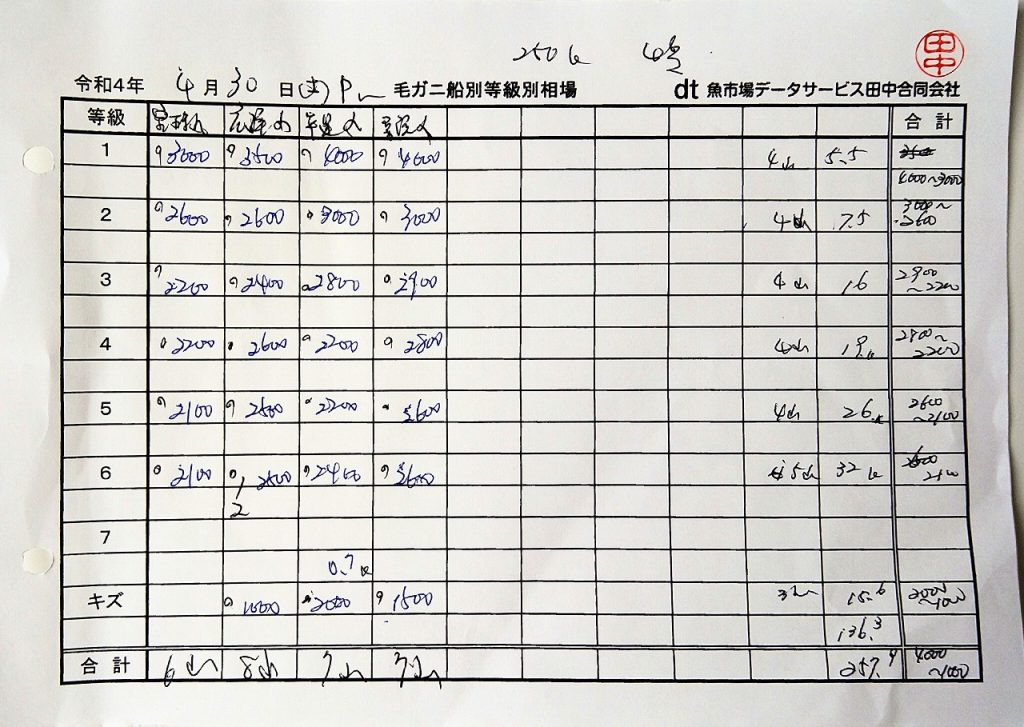 250 k
田中
令和4年 4月30日(土)Pm 毛ガニ船別等級別相場 dt 魚市場データサービス田中合同会社
等級 合計
1 3000 3500 4000 4000 4山 5.5
4000~3000
2 2600 2600 3000 3000 4山 7.5 3000~2600
3 2200 2400 2800 2900 4山 16 2900~2200
4 2200 2600 2200 2800 4山 19.k 2800~2200
5 2100 2500 2200 2600 4山 26.k 2600~2100
6 2100 2500 2400 2600 5山 32 k
2
7
0.7 k
キズ 1000 2000 1500 15.6 2000~1000
136.3
合計 6山 8山 7山 7山 257.9 4000~1000